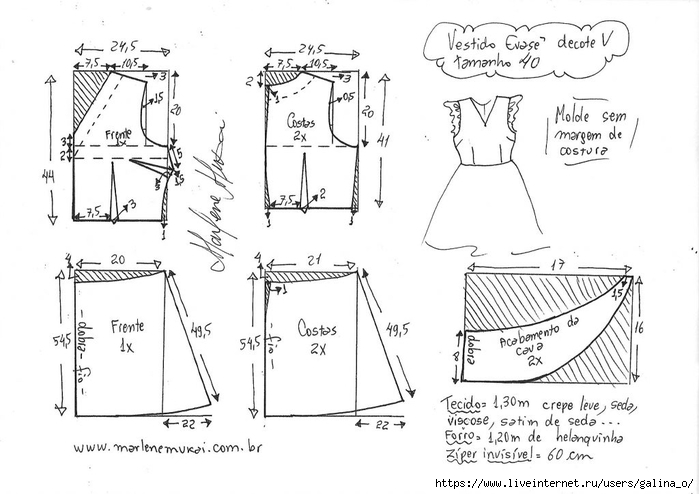 24,5
7,5
10,5
3
1,5
20
Frente
1x
3
2
5
5
3
44
7,5
3
1
24,5
7,5
10,5
2
3
1
0,5
20
Costas
2x
41
7,5
2
1
Marlene Mukai
Vestido Evasê decote V
tamanho 40
Molde sem
margem de
costura
20
4
54,5
dobra - fio -
Frente
1x
49,5
22
21
4
1
54,5
- fio -
Costas
2x
49,5
22
17
15
16
8
dobra
Acabamento da
cava
2x
www.marlenemukai.com.br
Tecido= 1,30m crepe leve, seda,
viscose, satim de seda...
Forro= 1,20m de helanquinha
Zíper invisível = 60 cm
https://www.liveinternet.ru/users/galina_o/